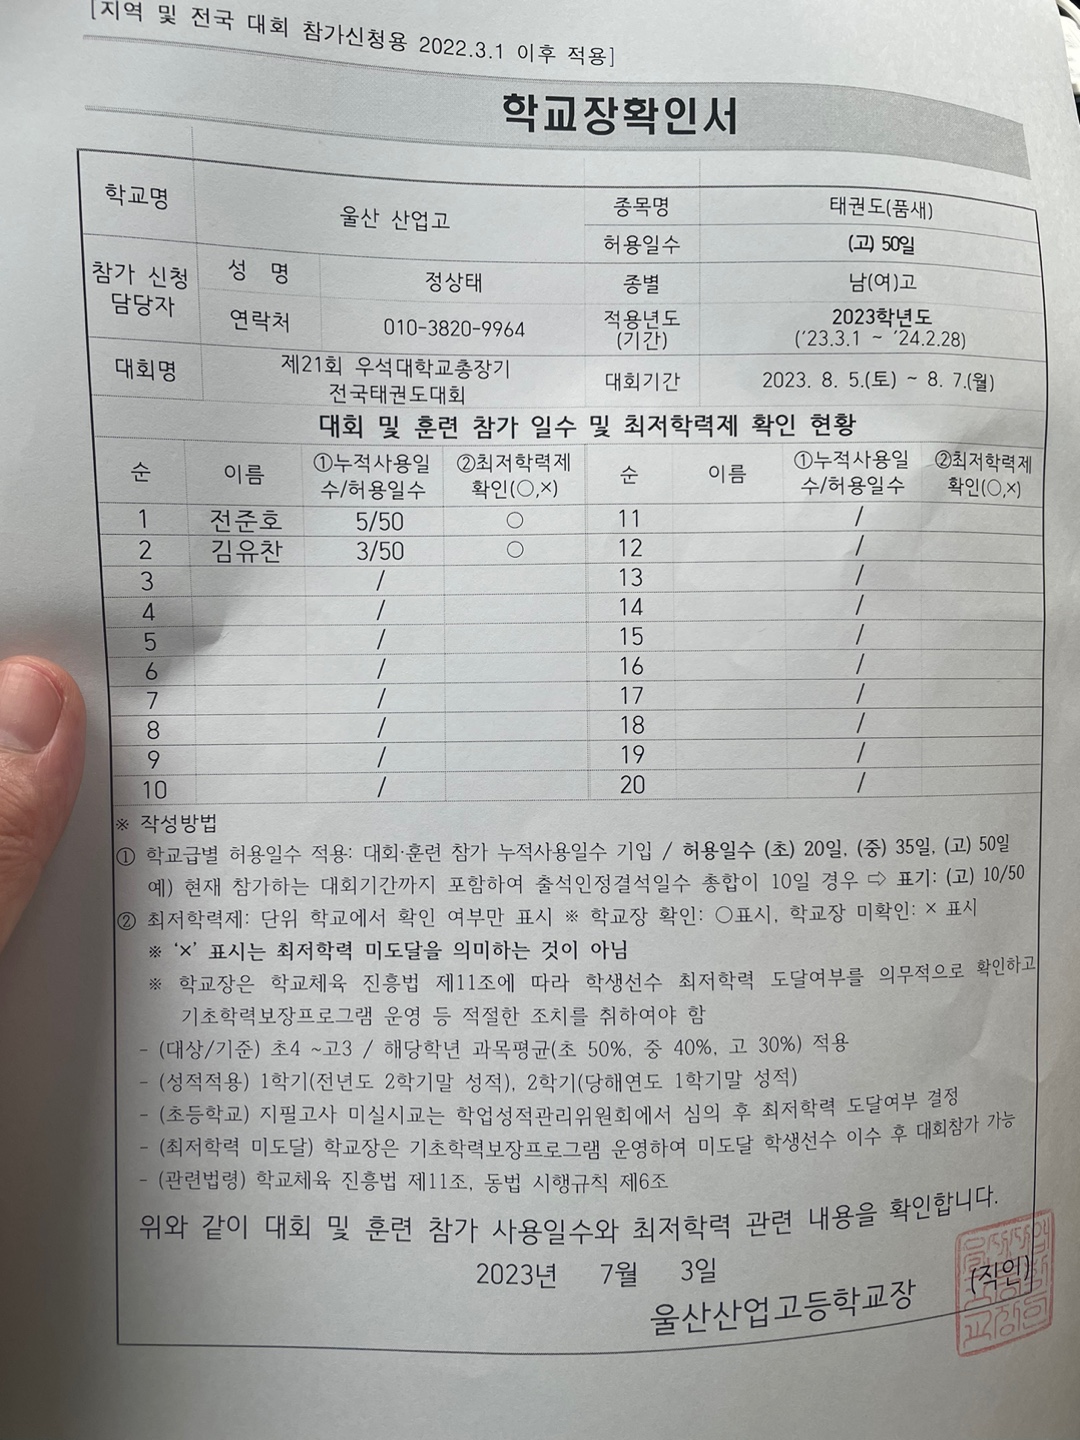 [지역 및 전국 대회 참가신청용 2022.3.1 이후 적용]
학교장확인서
학교명 울산 산업고 종목명 태권도(품새)
허용일수 (고) 50일
참가 신청 담당자 성 명 정상태 종별 남(여)고
연락처 010-3820-9964 적용년도 (기간) 2023학년도
('23.3.1 ~ '24.2.28)
대회명 제21회 우석대학교총장기
전국태권도대회 대회기간 2023. 8. 5.(토) ~ 8. 7.(월)
대회 및 훈련 참가 일수 및 최저학력제 확인 현황
순 이름 ①누적사용일수/허용일수 ②최저학력제 확인(○,×) 순 이름 ①누적사용일수/허용일수 ②최저학력제 확인(○,×)
1 전준호 5/50 ○ 11 /
2 김유찬 3/50 ○ 12 /
3 / 13 /
4 / 14 /
5 / 15 /
6 / 16 /
7 / 17 /
8 / 18 /
9 / 19 /
10 / 20 /
※ 작성방법
① 학교급별 허용일수 적용: 대회·훈련 참가 누적사용일수 기입 / 허용일수 (초) 20일, (중) 35일, (고) 50일
예) 현재 참가하는 대회기간까지 포함하여 출석인정결석일수 총합이 10일 경우 ⇨ 표기: (고) 10/50
② 최저학력제: 단위 학교에서 확인 여부만 표시 ※ 학교장 확인: ○표시, 학교장 미확인: × 표시
※ '×' 표시는 최저학력 미도달을 의미하는 것이 아님
※ 학교장은 학교체육 진흥법 제11조에 따라 학생선수 최저학력 도달여부를 의무적으로 확인하고
기초학력보장프로그램 운영 등 적절한 조치를 취하여야 함
- (대상/기준) 초4 ~고3 / 해당학년 과목평균(초 50%, 중 40%, 고 30%) 적용
- (성적적용) 1학기(전년도 2학기말 성적), 2학기(당해연도 1학기말 성적)
- (초등학교) 지필고사 미실시교는 학업성적관리위원회에서 심의 후 최저학력 도달여부 결정
- (최저학력 미도달) 학교장은 기초학력보장프로그램 운영하여 미도달 학생선수 이수 후 대회참가 가능
- (관련법령) 학교체육 진흥법 제11조, 동법 시행규칙 제6조
위와 같이 대회 및 훈련 참가 사용일수와 최저학력 관련 내용을 확인합니다.
2023년 7월 3일
울산산업고등학교장 (직인)